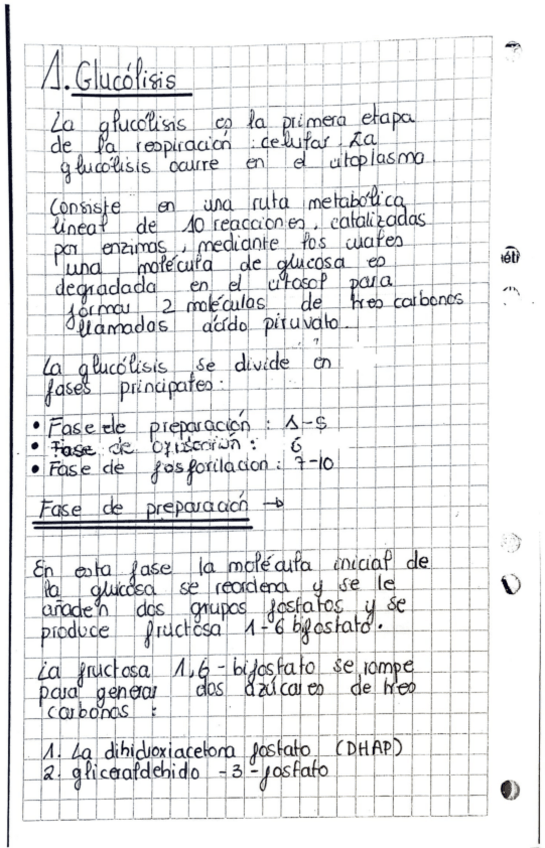 1. Glucólisis
La glucólisis es la primera etapa
de la respiración celular. La
glucólisis ocurre en el citoplasma.
Consiste en una ruta metabólica
lineal de 10 reacciones, catalizadas
por enzimas, mediante los cuales
una molécula de glucosa es
degradada en el citosol para
formar 2 moléculas de tres carbonos
llamadas ácido piruvato.
La glucólisis se divide en
fases principales:
• Fase de preparación: 1-5
• Fase de oxidación: 6
• Fase de fosforilacion: 7-10
Fase de preparación →
En esta fase la molécula inicial de
la glucosa se reordena y se le
añaden dos grupos fosfatos y se
produce fructosa 1-6 bifosfato.
La fructosa 1,6-bifosfato se rompe
para generar dos azúcares de tres
carbonos:
1. La dihidroxiacetona fosfato (DHAP)
2. gliceraldehido -3-fosfato